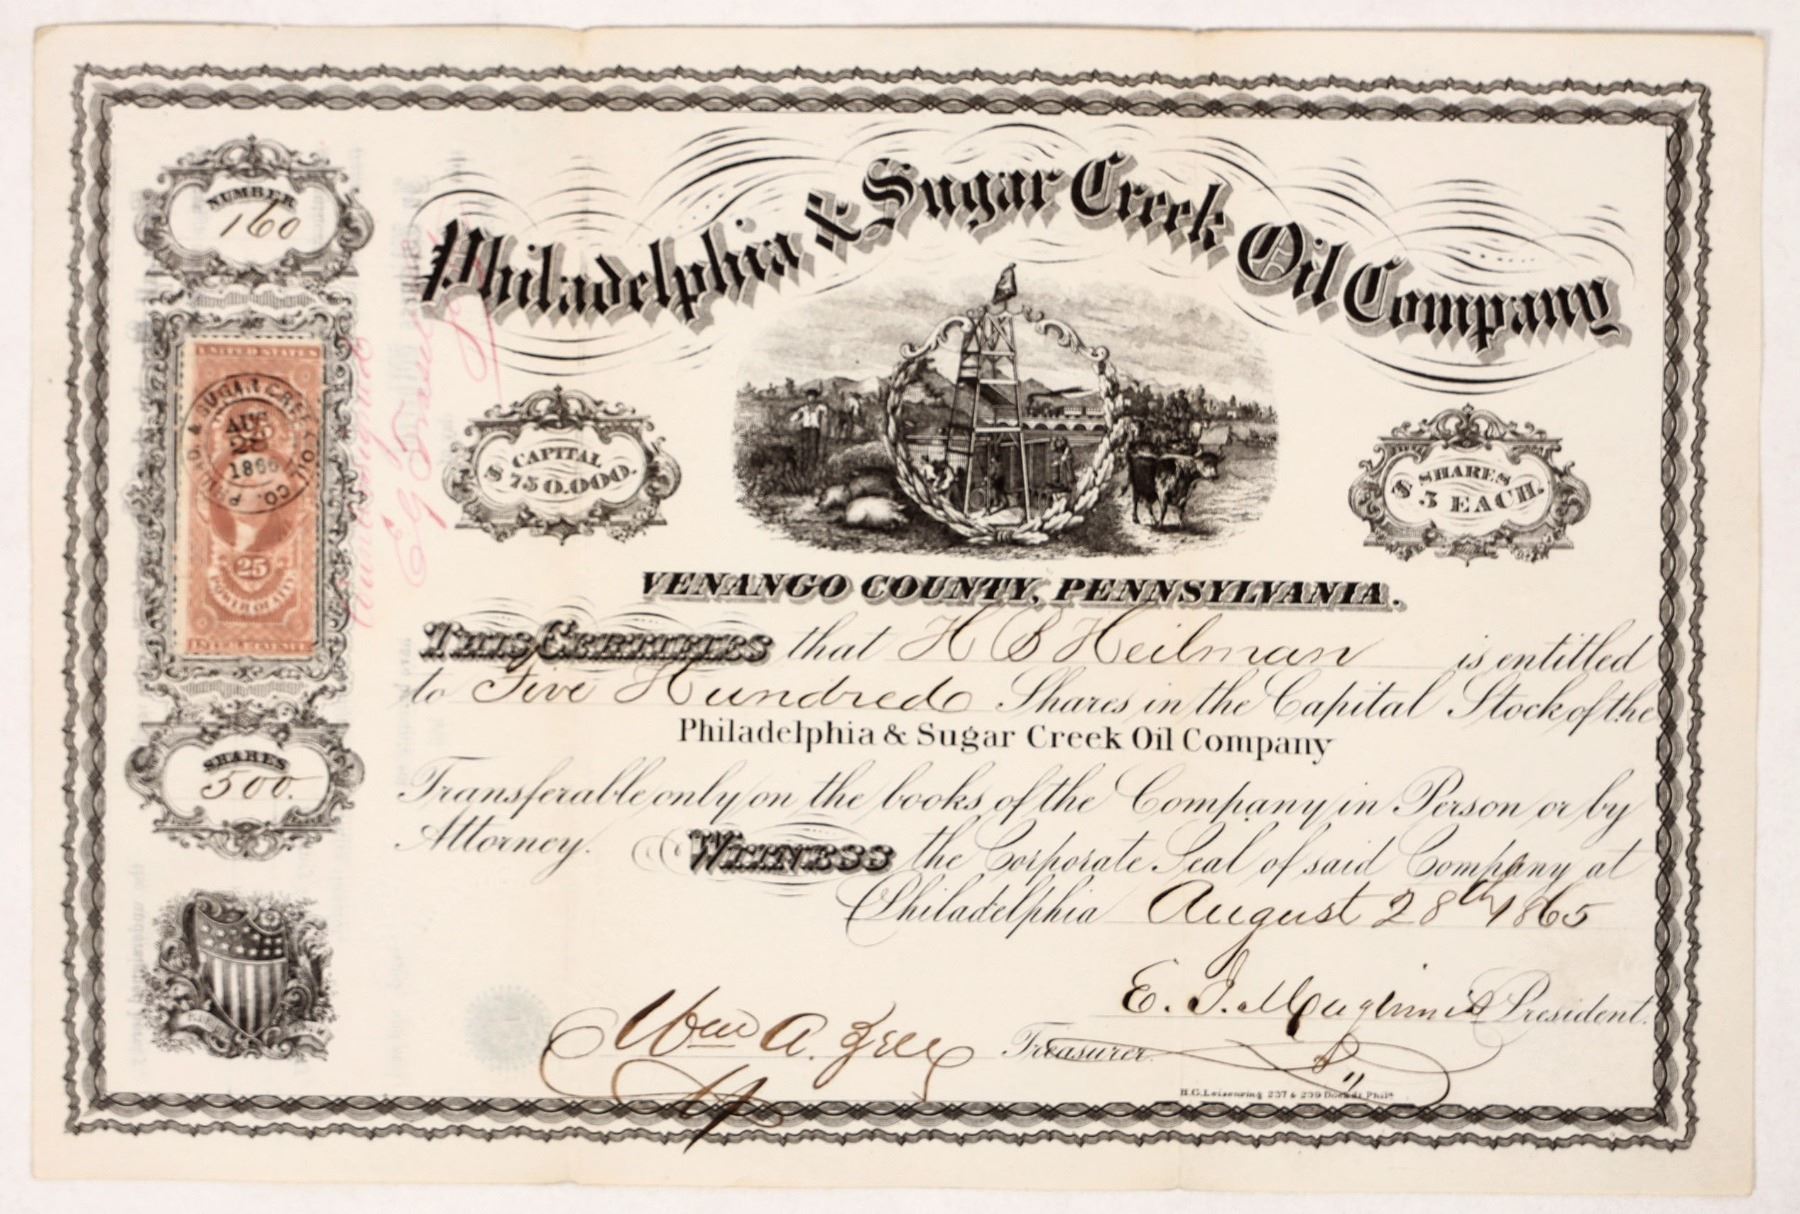 NUMBER
160
Philadelphia & Sugar Creek Oil Company
UNITED STATES
PHILAD. & SUGAR CREEK OIL CO.
AUG
28
1865
25
POWER OF ATTY
INTER. REVENUE
$ CAPITAL
750.000.
$ SHARES
5 EACH.
VENANGO COUNTY, PENNSYLVANIA.
THIS CERTIFIES that H B Heilman is entitled
to Five Hundred Shares in the Capital Stock of the
Philadelphia & Sugar Creek Oil Company
SHARES
500.
Transferable only on the books of the Company in Person or by
Attorney. WITNESS the Corporate Seal of said Company at
Philadelphia August 28th 1865
E. President.
Wm A. Treasurer.
H.G. Leisenring 237 & 239 Dock St Phila